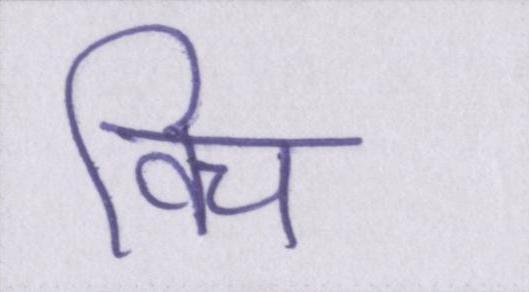 विच